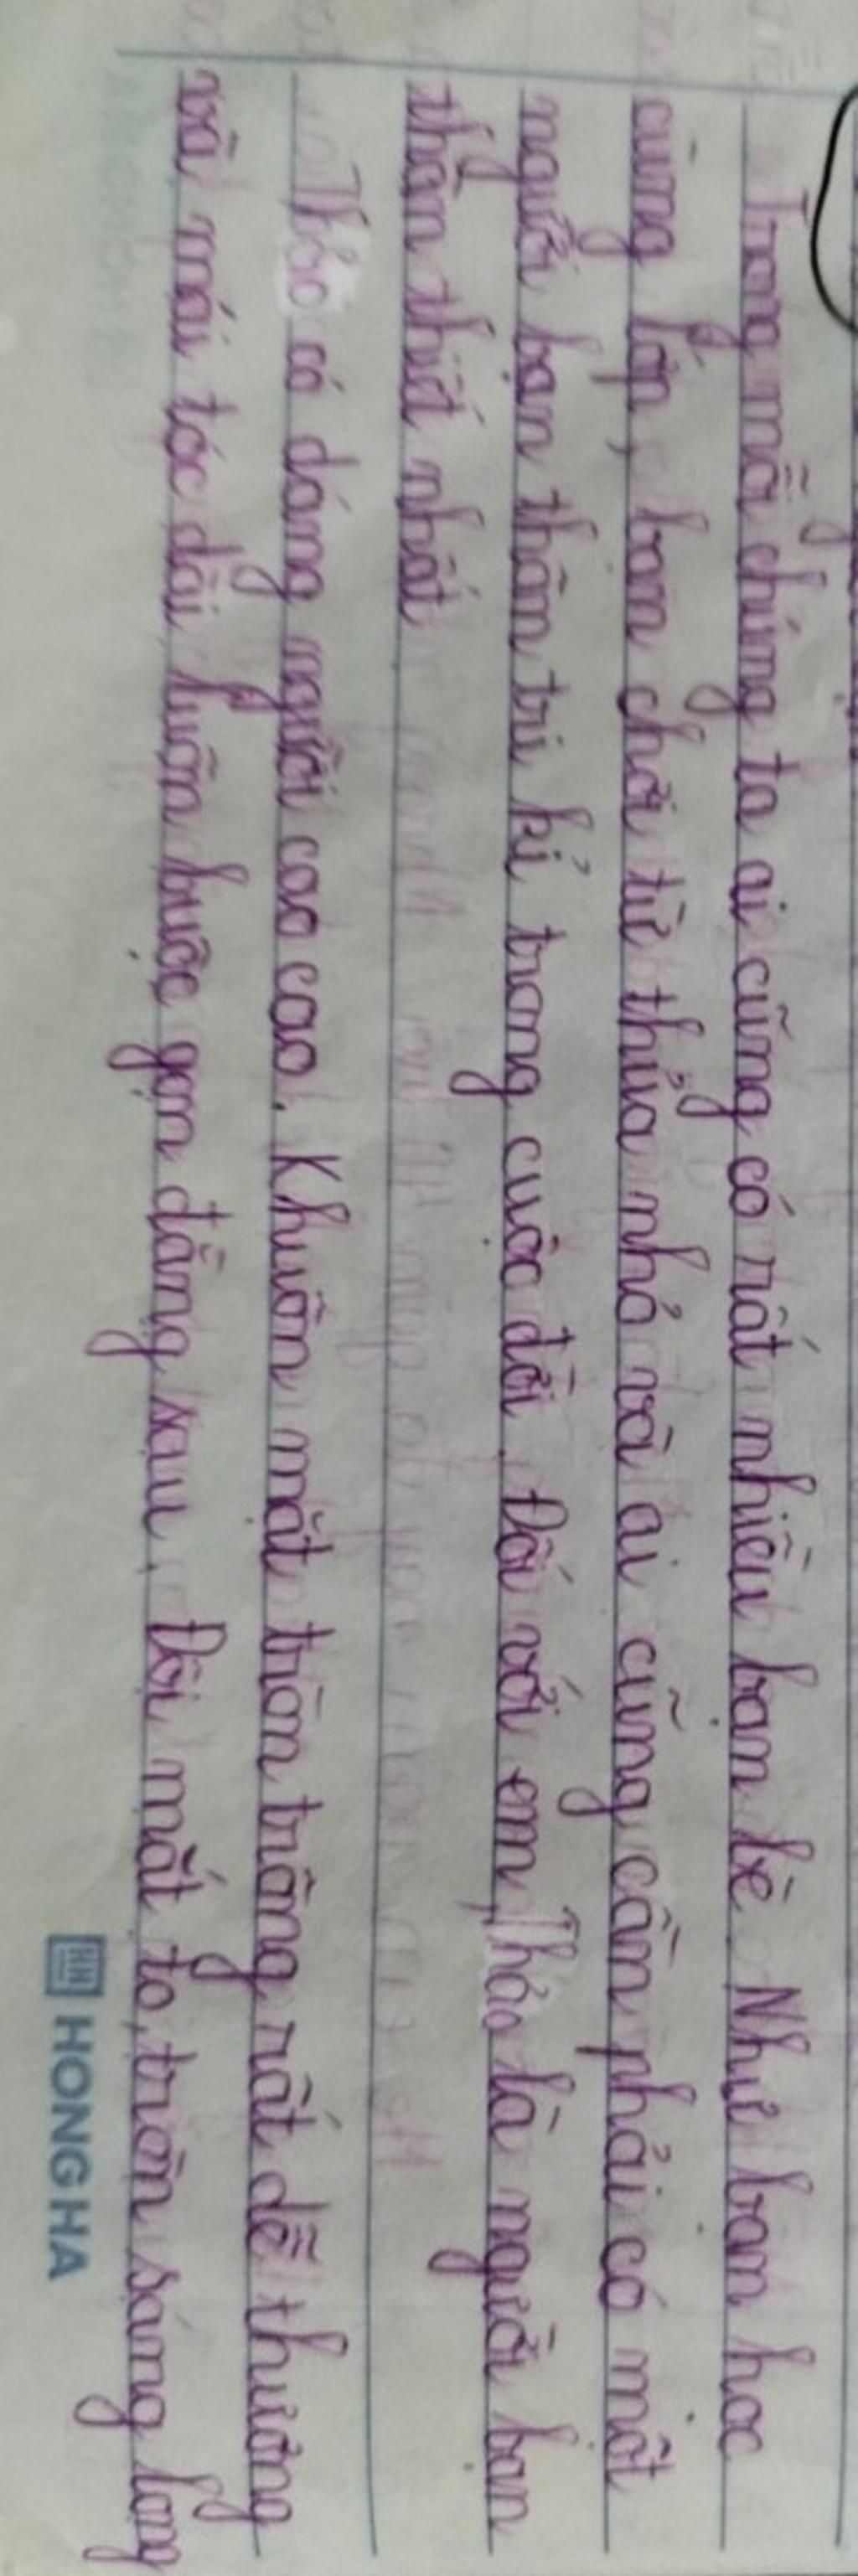 Trong mỗi chúng ta ai cũng có rất nhiều bạn bè. Như bạn học
cùng lớp, bạn chơi từ thủa nhỏ và ai cũng cần phải có một
người bạn thân tri kỉ trong cuộc đời. Đối với em, Thảo là người bạn
thân thiết nhất
Thảo có dáng người cao cao. Khuôn mặt tròn trông rất dễ thương
và mái tóc dài luôn buộc gọn đằng sau. Đôi mắt to, tròn sáng long
HONG HA